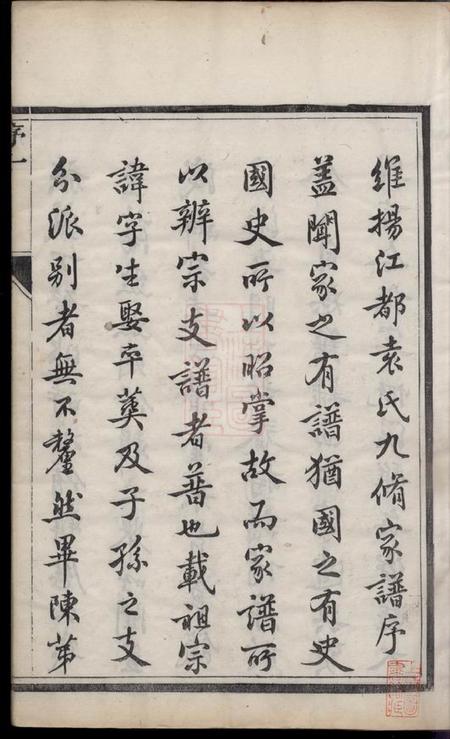 維揚江都袁氏九脩家譜序
蓋聞家之有譜猶國之有史
國史所以昭掌故而家譜所
以辨宗支譜者普也載祖宗
諱字生娶卒葬及子孫之支
分派別者無不釐然畢陳第
序一